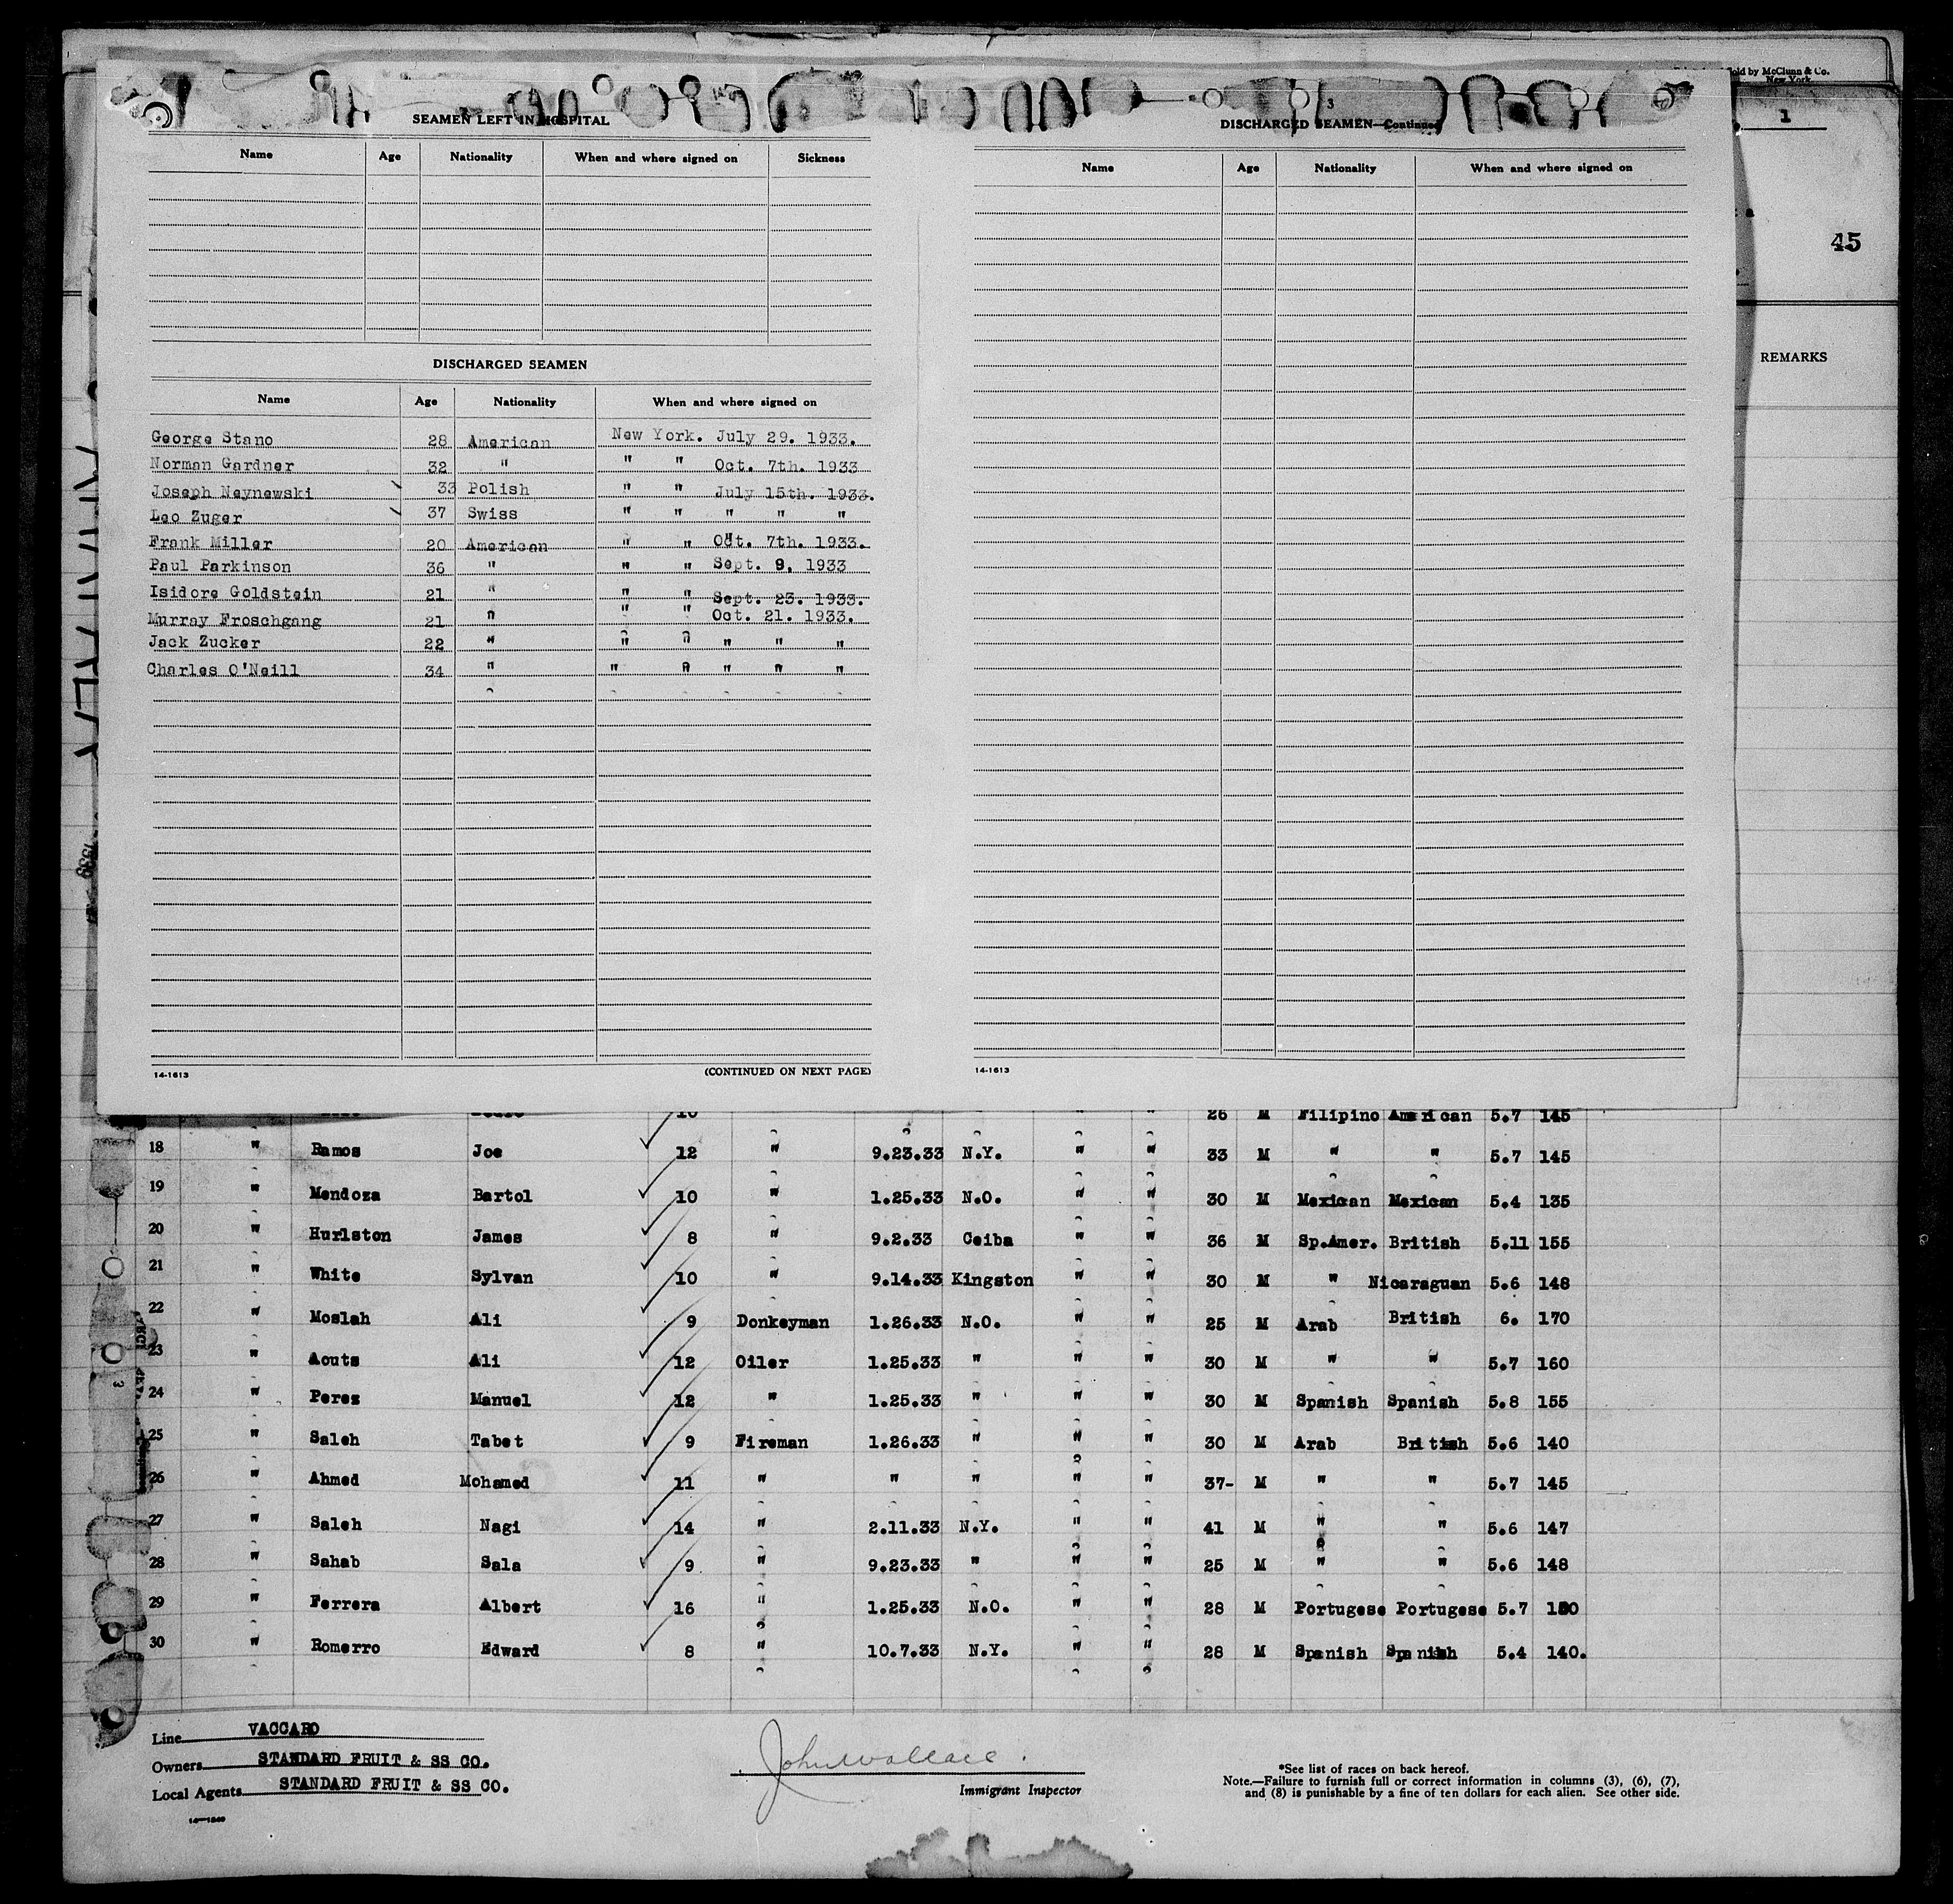 Sold by McClunn & Co.
New York
1
45
REMARKS
SEAMEN LEFT IN HOSPITAL
Name Age Nationality When and where signed on Sickness
DISCHARGED SEAMEN
Name Age Nationality When and where signed on
George Stano 28 American New York. July 29. 1933.
Norman Gardner 32 " " " Oct. 7th. 1933
Joseph Neynewski 33 Polish " " July 15th. 1933.
Leo Zuger 37 Swiss " " " " "
Frank Miller 20 American " " Oct. 7th. 1933.
Paul Parkinson 36 " " " Sept. 9. 1933
Isidore Goldstein 21 " " " Sept. 23. 1933.
Murray Froschgang 21 " " " Oct. 21. 1933.
Jack Zucker 22 " " " " " "
Charles O'Neill 34 " " " " " "
14-1613 (CONTINUED ON NEXT PAGE)
3
DISCHARGED SEAMEN—Continued
Name Age Nationality When and where signed on
14-1613
10 " " 26 M Filipino American 5.7 145
18 " Ramos Joe 12 " 9.23.33 N.Y. " " 33 M " " 5.7 145
19 " Mendoza Bartol 10 " 1.25.33 N.O. " " 30 M Mexican Mexican 5.4 135
20 " Hurlston James 8 " 9.2.33 Ceiba " " 36 M Sp.Amer. British 5.11 155
21 " White Sylvan 10 " 9.14.33 Kingston " " 30 M " Nicaraguan 5.6 148
22 " Moslah Ali 9 Donkeyman 1.26.33 N.O. " " 25 M Arab British 6. 170
23 " Aouts Ali 12 Oiler 1.25.33 " " " 30 M " " 5.7 160
24 " Perez Manuel 12 " 1.25.33 " " " 30 M Spanish Spanish 5.8 155
25 " Saleh Tabet 9 Fireman 1.26.33 " " " 30 M Arab British 5.6 140
26 " Ahmed Mohamed 11 " " " " " 37- M " " 5.7 145
27 " Saleh Nagi 14 " 2.11.33 N.Y. " " 41 M " " 5.6 147
28 " Sahab Sala 9 " 9.23.33 " " " 25 M " " 5.6 148
29 " Ferrera Albert 16 " 1.25.33 N.O. " " 28 M Portugese Portugese 5.7
30 " Romerro Edward 8 " 10.7.33 N.Y. " " 28 M Spanish Spanish 5.4 140.
Line VACCARO
Owners STANDARD FRUIT & SS CO.
Local Agents STANDARD FRUIT & SS CO.
John Wallace.
Immigrant Inspector
*See list of races on back hereof.
Note.—Failure to furnish full or correct information in columns (3), (6), (7),
and (8) is punishable by a fine of ten dollars for each alien. See other side.